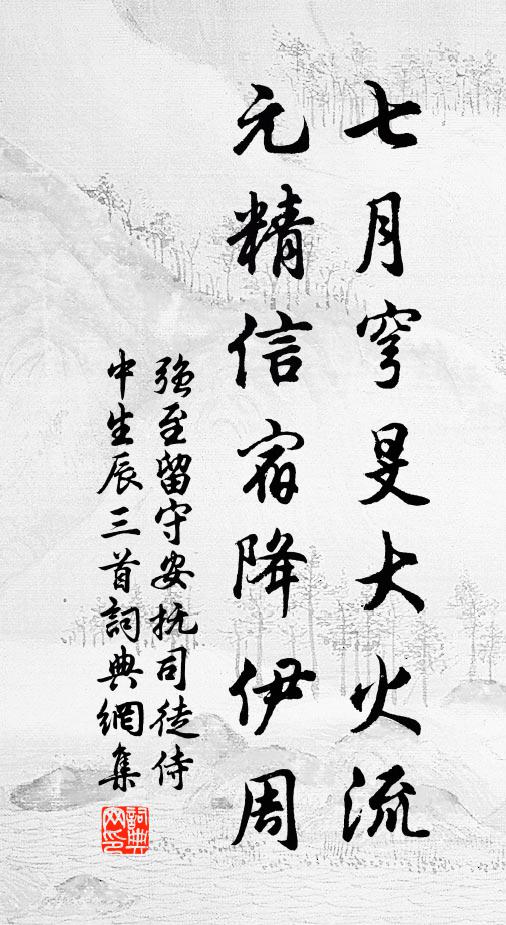 七月穹旻大火流
元精信宿降伊周
強至留守安抚司徒侍
中生辰三首詞典網集
詞典网印